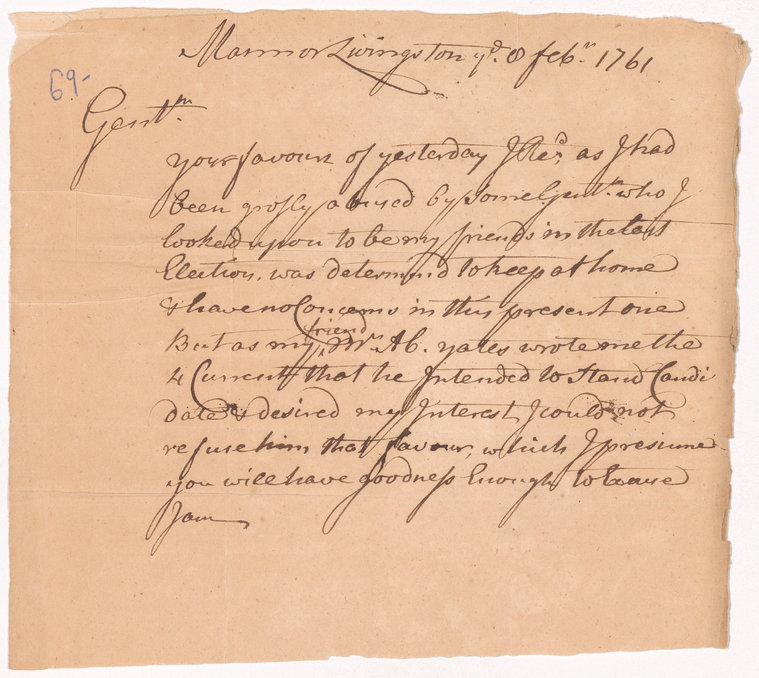 Mannor Livingston yᵉ. 8 febʳʸ. 1761
69-
Gentᵐ.
your favour of yesterday I Recᵈ. as I had
been grossly abused by some Gentᵐ. who I
looked upon to be my friends in the last
Election, was determind to keep at home
& have no Concerns in this present one
But as my ^friend Mʳ. Ab. yates wrote me the
4 Current that he Intended to Stand Candi
date & desired my Interest, I could not
refuse him that favour, which I presume
you will have goodness Enough to Excuse
I am